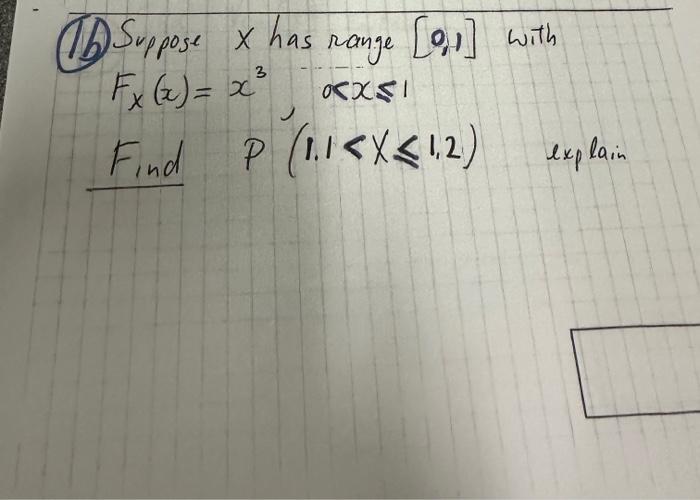 1b Suppose X has range [0,1] with
Fx(x) = x³, 0<x≤1
Find P (1.1 < X ≤ 1.2) explain